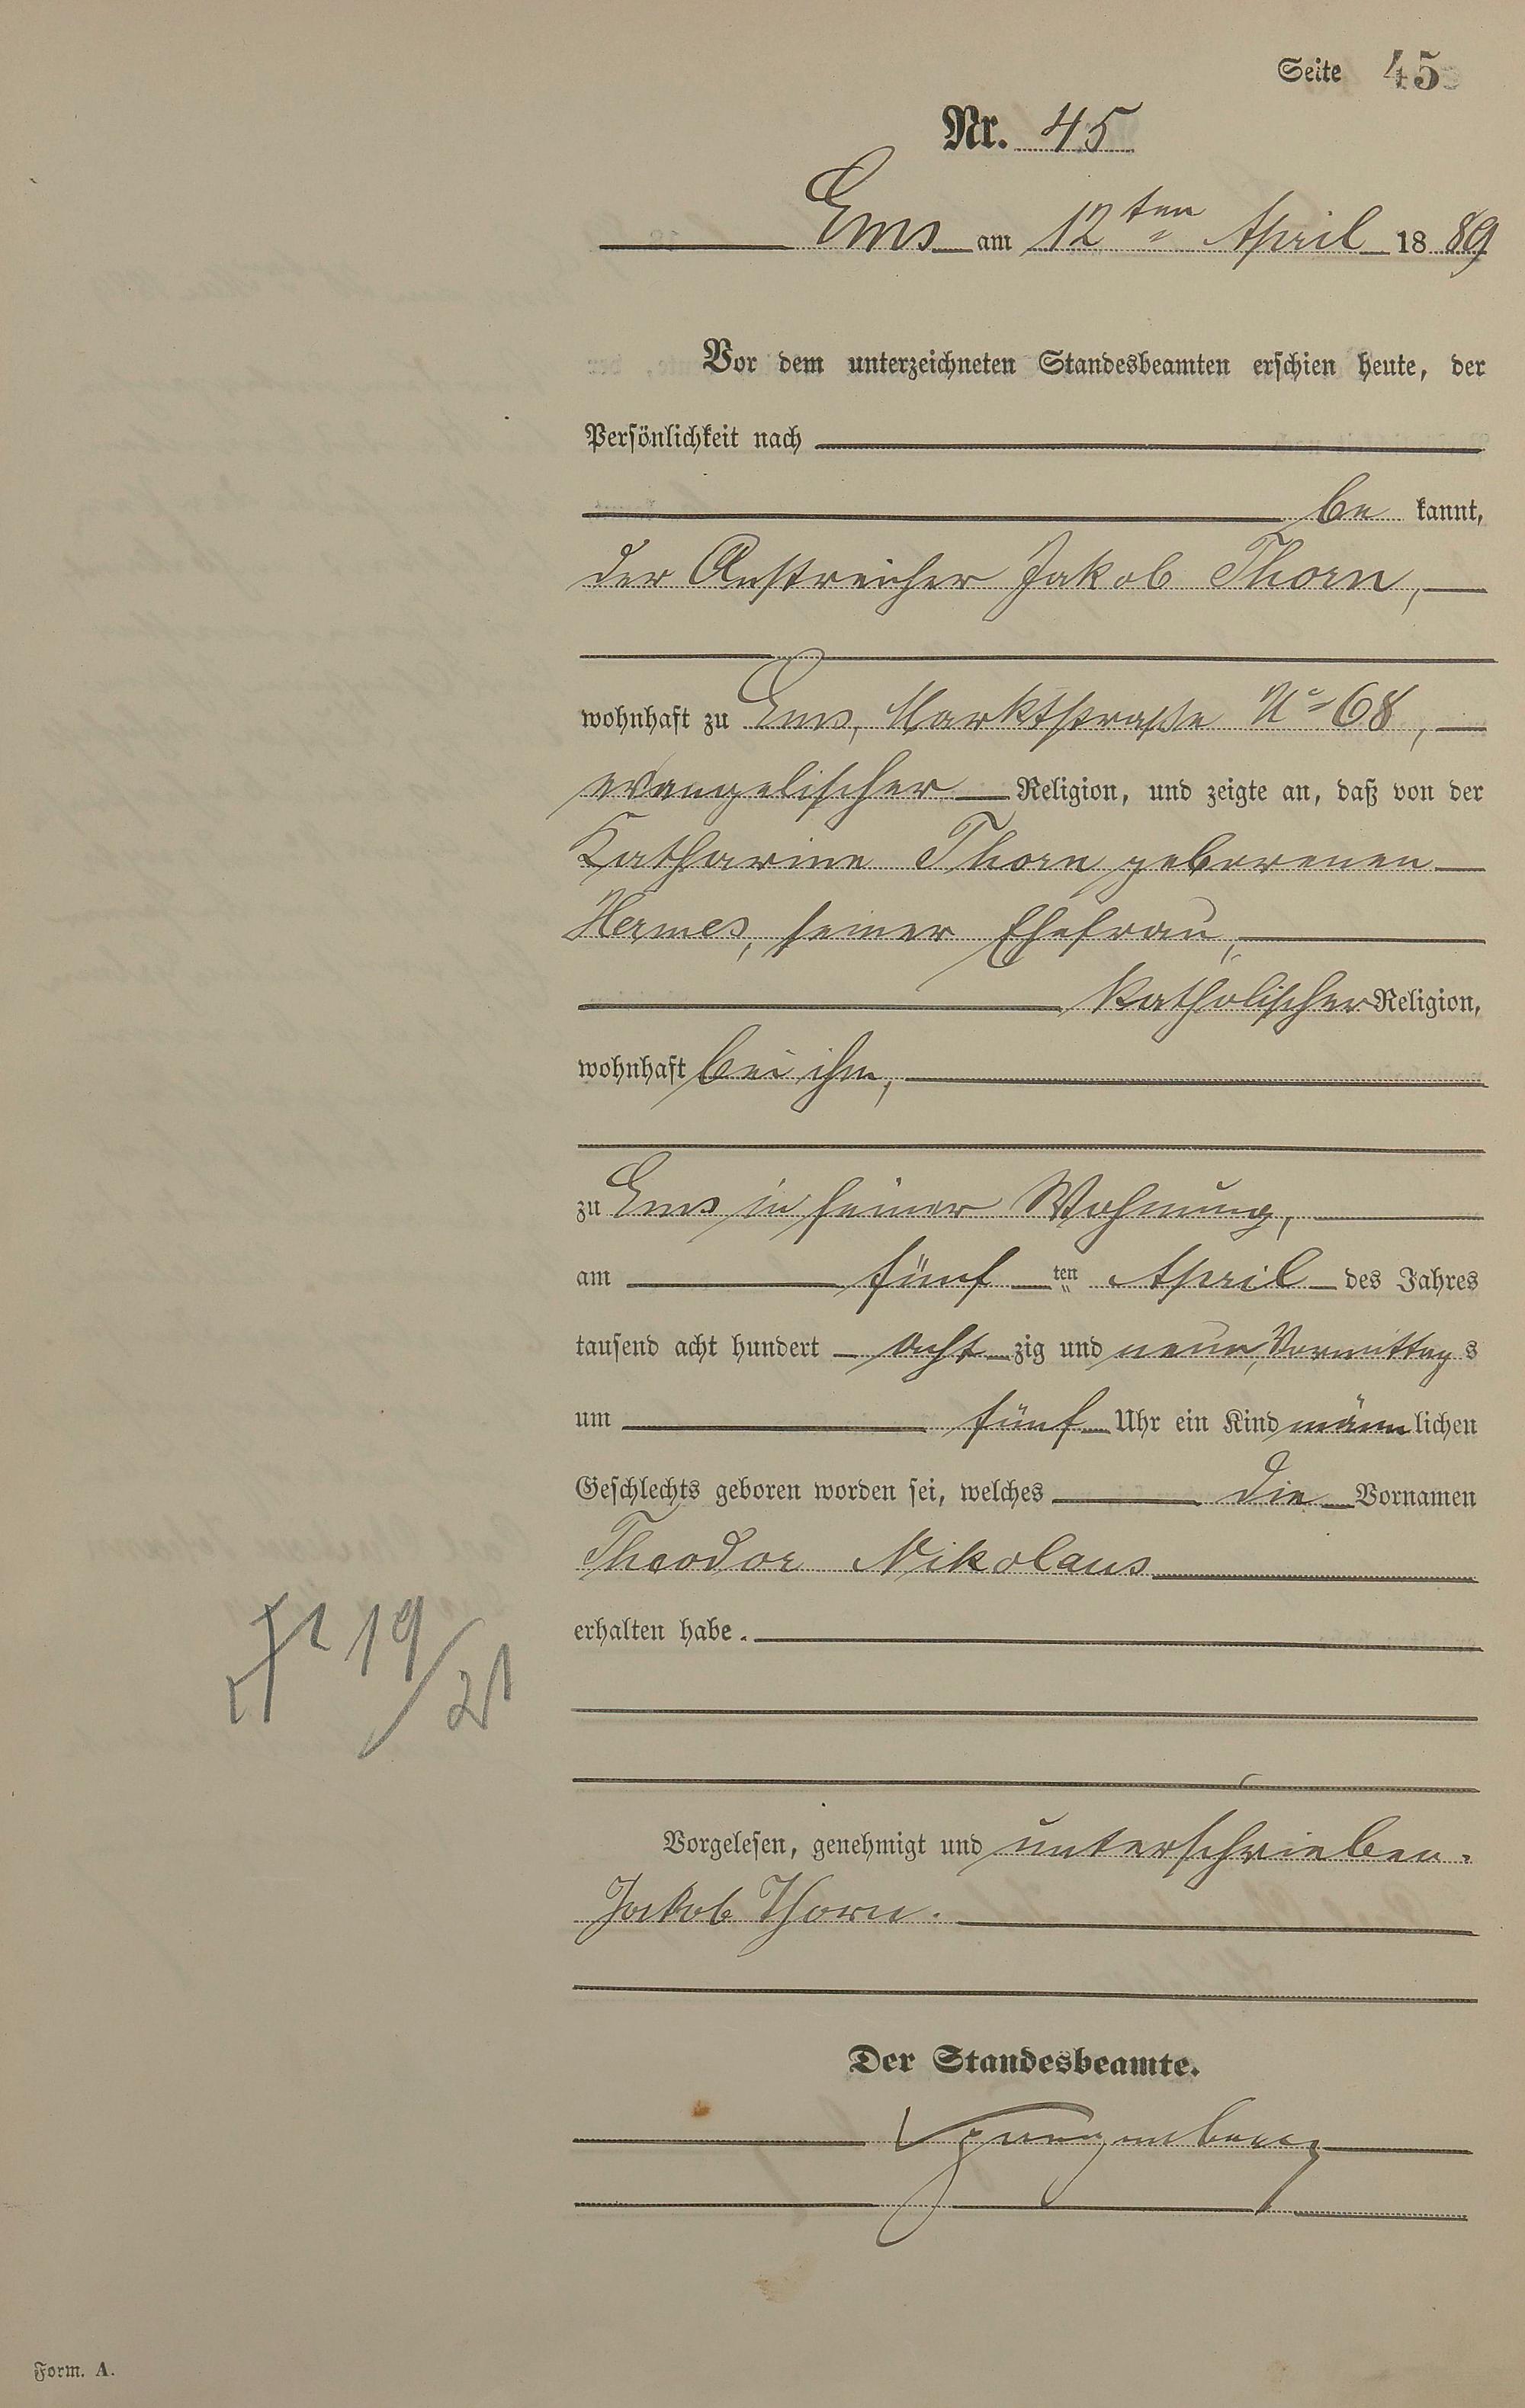 Seite 45
Nr. 45
Ems am 12ten April 1889
Vor dem unterzeichneten Standesbeamten erschien heute, der
Persönlichkeit nach
be kannt,
der Anstreicher Jakob Thorn,
wohnhaft zu Ems, Marktstraße No 68,
evangelischer Religion, und zeigte an, daß von der
Katharine Thorn geborenen
Hermes, seiner Ehefrau,
katholischer Religion,
wohnhaft bei ihm,
zu Ems in seiner Wohnung,
am fünf ten April des Jahres
tausend acht hundert acht zig und neun, Vormittag s
um fünf Uhr ein Kind männ lichen
Geschlechts geboren worden sei, welches die Vornamen
Theodor Nikolaus
erhalten habe.
19/21
Vorgelesen, genehmigt und unterschrieben.
Jakob Thorn.
Der Standesbeamte.
Form. A.